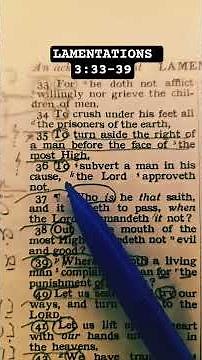 LAMENTATIONS
3:33-39
An ac
LAMEN
33 For he doth not afflict
willingly nor grieve the chil-
dren of men.
34 To crush under his feet all
the prisoners of the earth,
35 To turn aside the right of
a man before the face of the
most High,
36 To subvert a man in his
cause, the Lord approveth
not.
37 Who is he that saith,
and it eth to pass, when
the Lord mandeth it not?
38 Out mouth of the
most High deth not evil
and good?
39 Where a living
man compla for the
punishment of
40 Let us sea try our
ways, and turn to the
LORD.
41 Let us lift heart
with our han in
the heavens.
We have tra